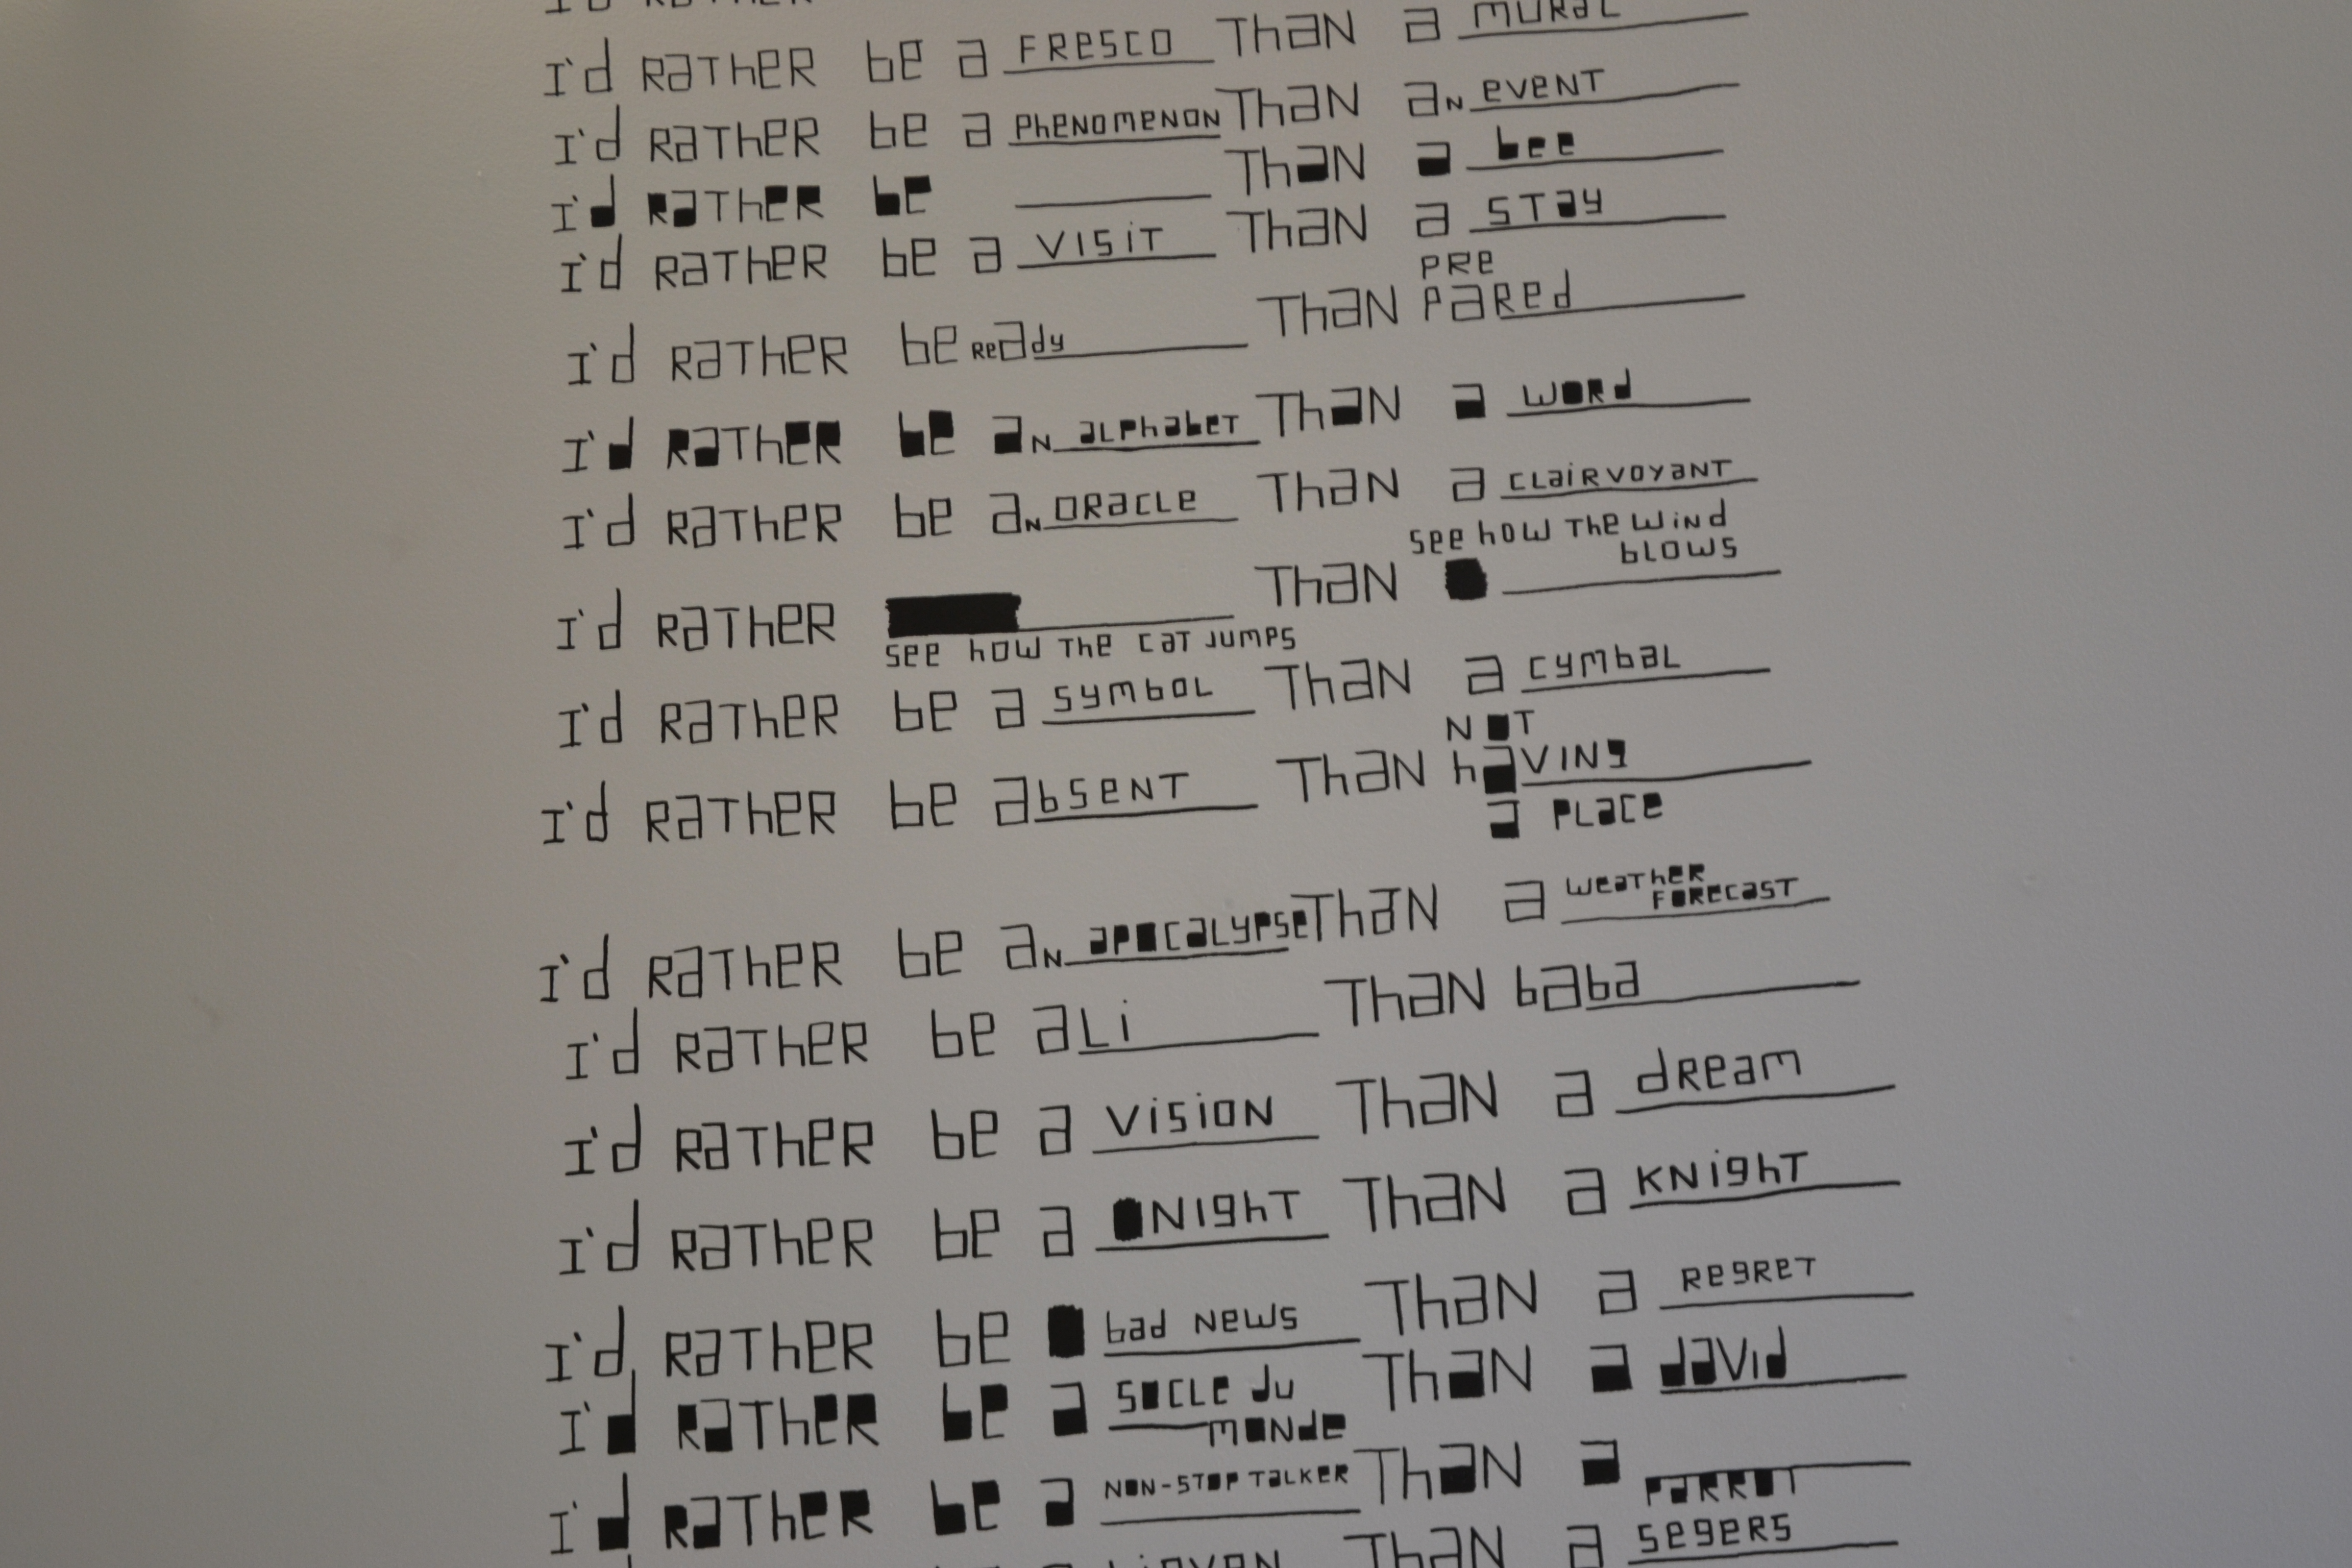 I'd RATHER
I'd RATHER be a FRESCO THAN a MURAL
I'd RATHER be a PHENOMENON THAN aN EVENT
I'd RATHER be THAN a bee
I'd RATHER be a VISIT THAN a STAY
PRE
I'd RATHER be READY THAN PARED
I'd RATHER be aN ALPHABET THAN a WORD
I'd RATHER be aN ORACLE THAN a CLAIRVOYANT
see how THE WIND
blows
I'd RATHER THAN
see how THE CAT JUMPS
I'd RATHER be a SYMBOL THAN a CYMBAL
NOT
I'd RATHER be ABSENT THAN HAVING
a PLACE
WEATHER
I'd RATHER be aN APOCALYPSE THAN a FORECAST
I'd RATHER be ALI THAN BABA
I'd RATHER be a VISION THAN a DREAM
I'd RATHER be a NIGHT THAN a KNIGHT
I'd RATHER be bad NEWS THAN a REGRET
I'd RATHER be a SOCLE DU THAN a DAVID
MONDE
I'd RATHER be a NON-STOP TALKER THAN a
PARROT
THAN a SEGERS